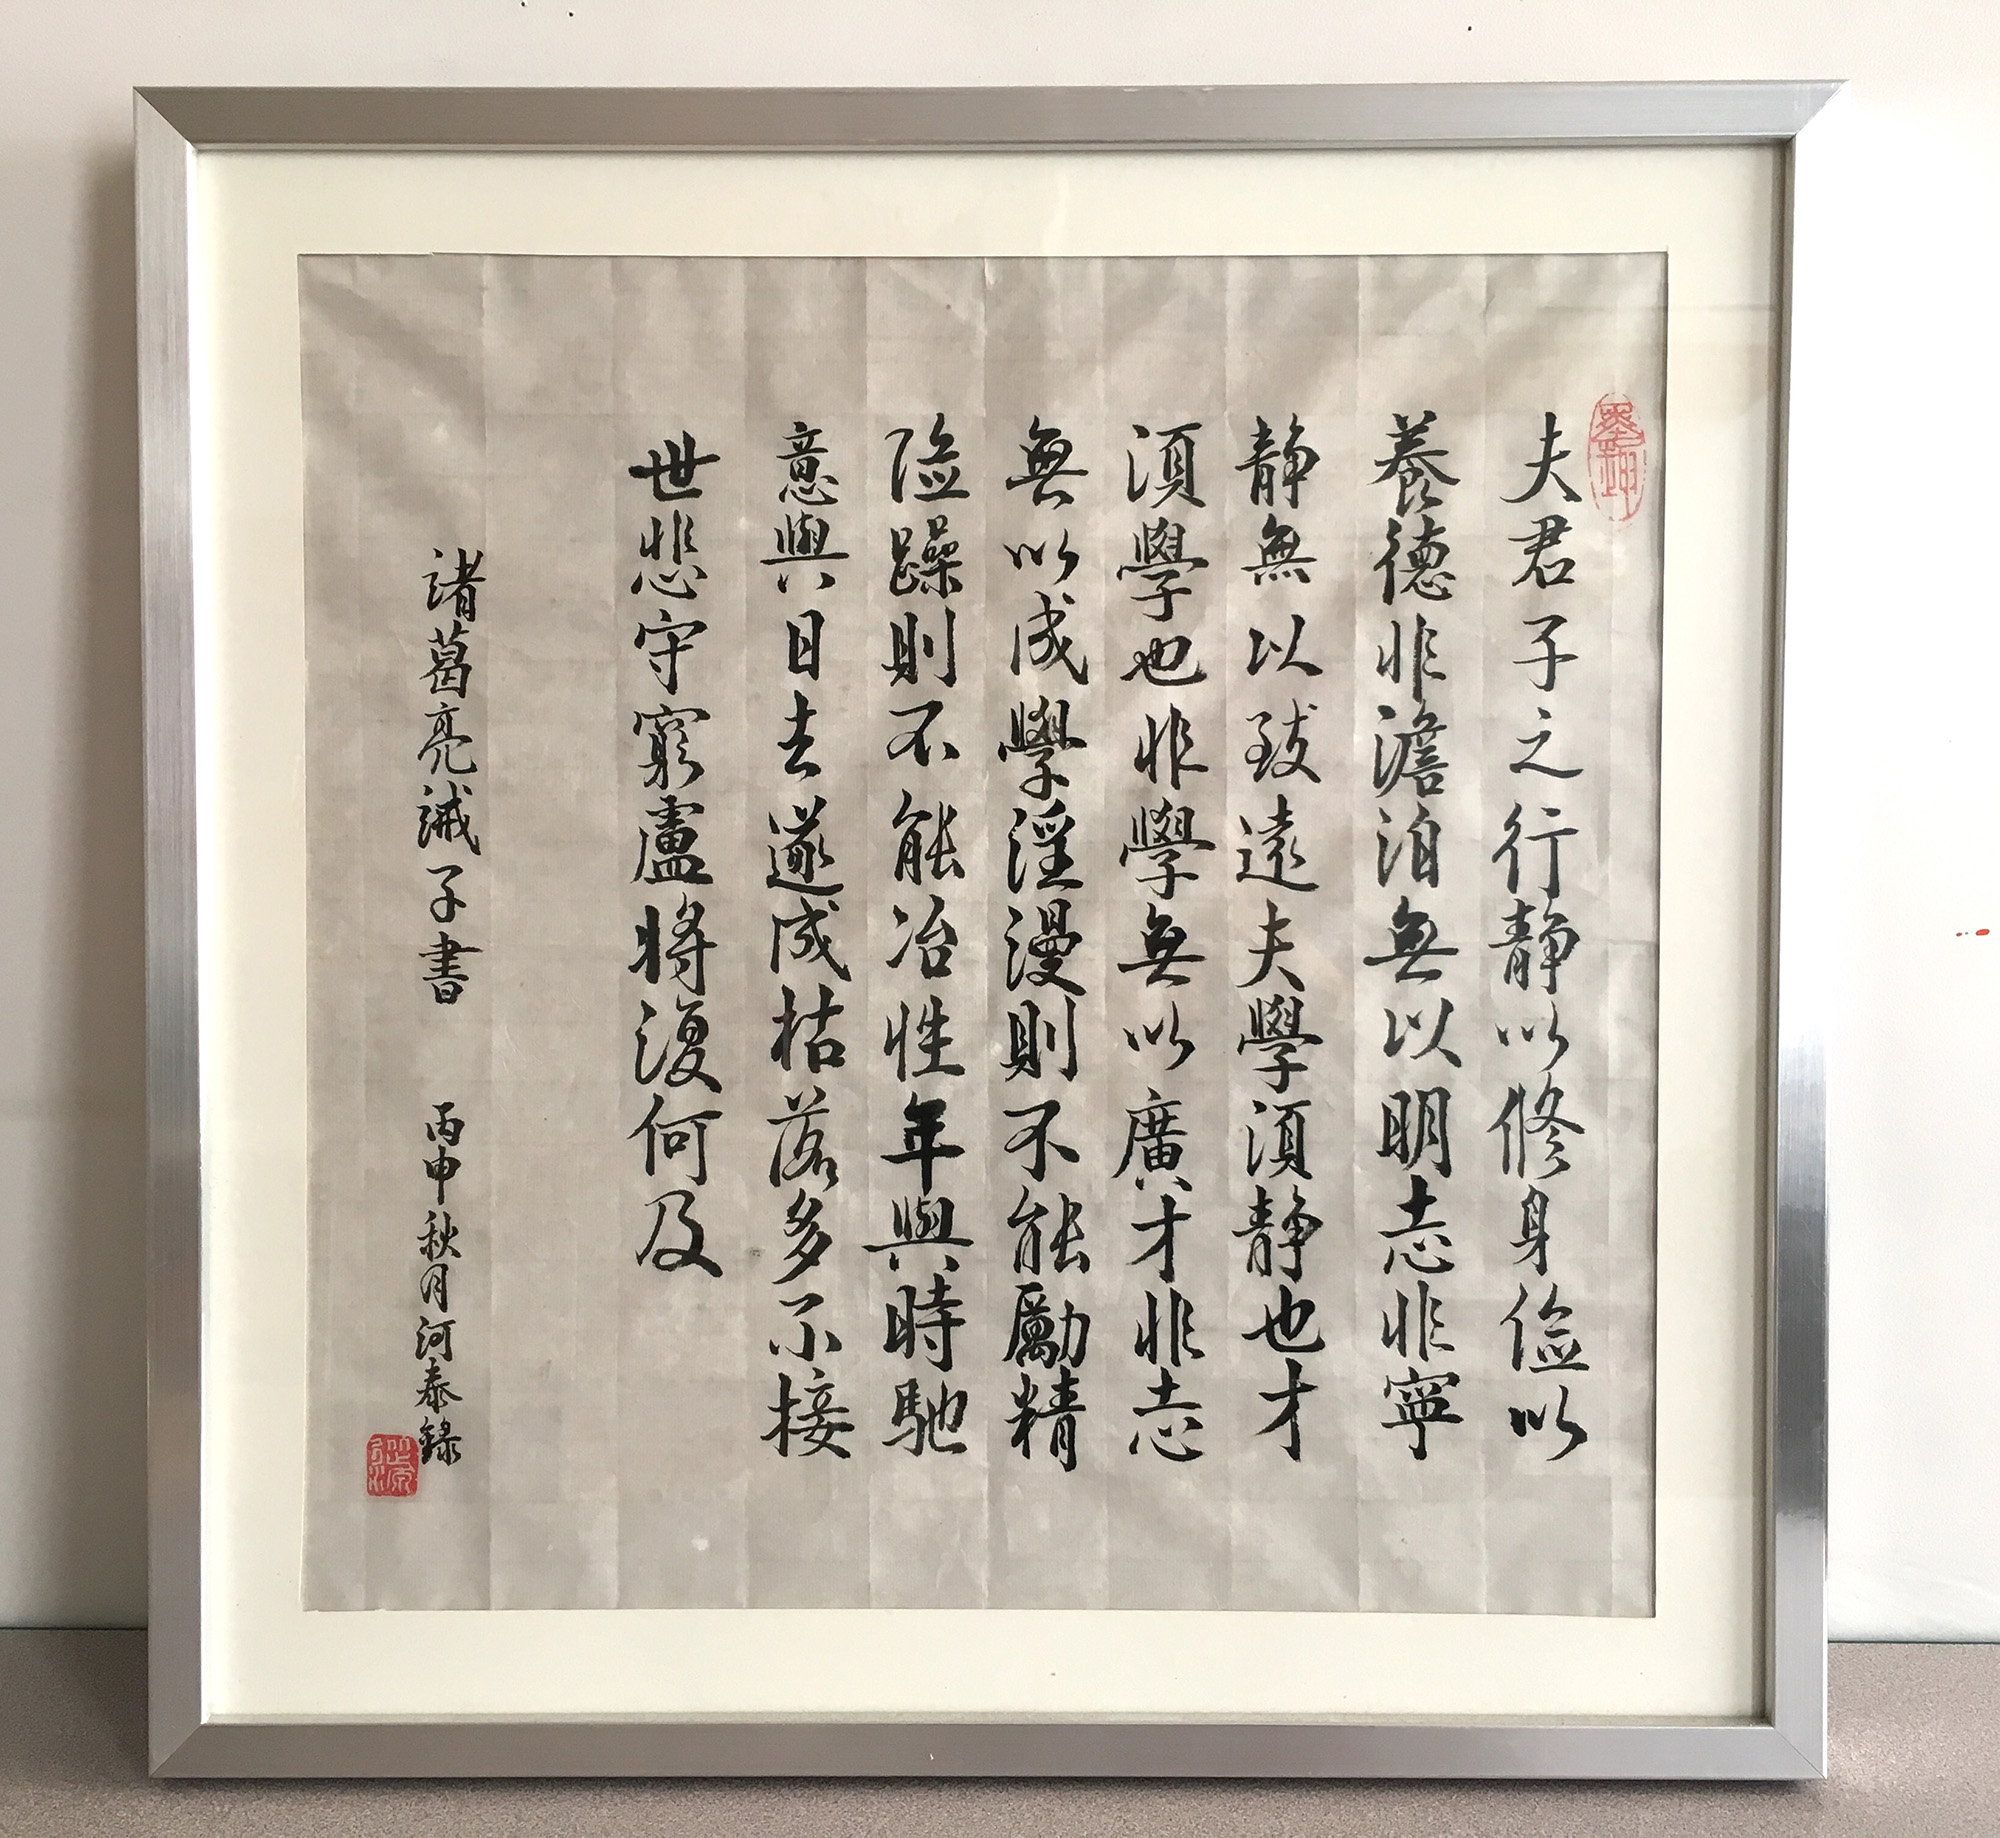 夫君子之行靜以修身儉以
養德非澹泊無以明志非寧
靜無以致遠夫學須靜也才
須學也非學無以廣才非志
無以成學淫漫則不能勵精
險躁則不能冶性年與時馳
意與日去遂成枯落多不接
世悲守窮廬將復何及
諸葛亮誡子書
丙申秋月河泰錄